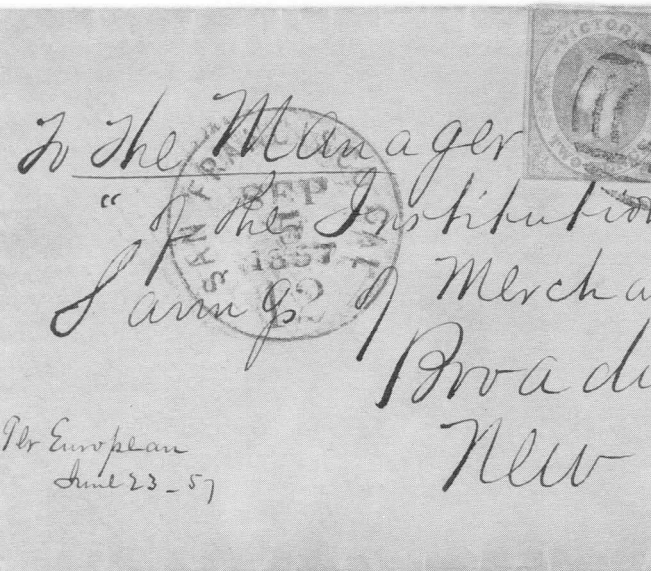 VICTORIA
To the Manager
" of the Institution
Savings of Mercha
Broad
New
SAN FRANCISCO CAL
SEP
1857
12
Per European
June 23 - 57